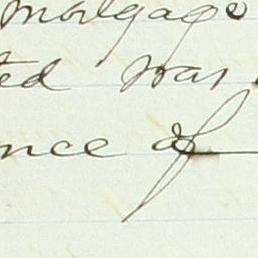 mortgage
ted was
nce of